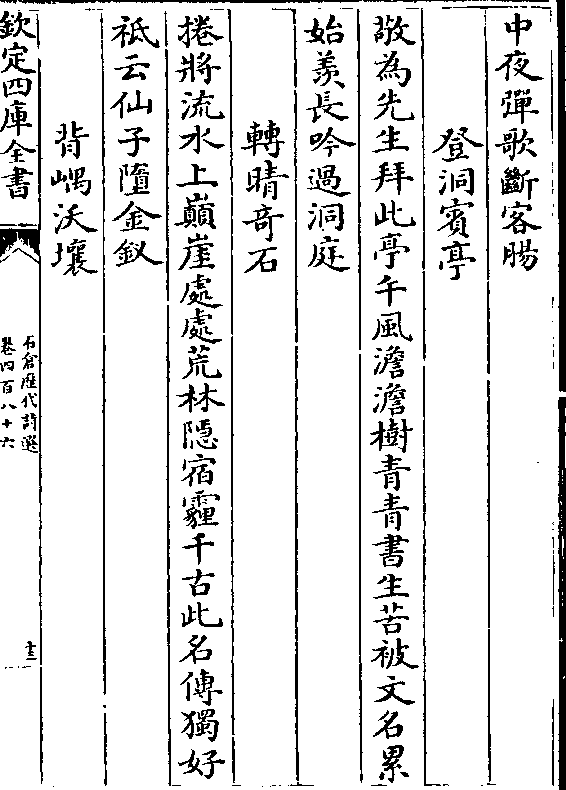 中夜彈歌斷客腸
登洞賓亭
敬為先生拜此亭午風澹澹樹青青書生苦被文名累
始羨長吟過洞庭
轉晴竒石
捲將流水上巔崖處處荒林隱宿霾千古此名傳獨好
祗云仙子墮金釵
背嵎沃壤
欽定四庫全書
石倉歴代詩選
卷四百八十六
十三